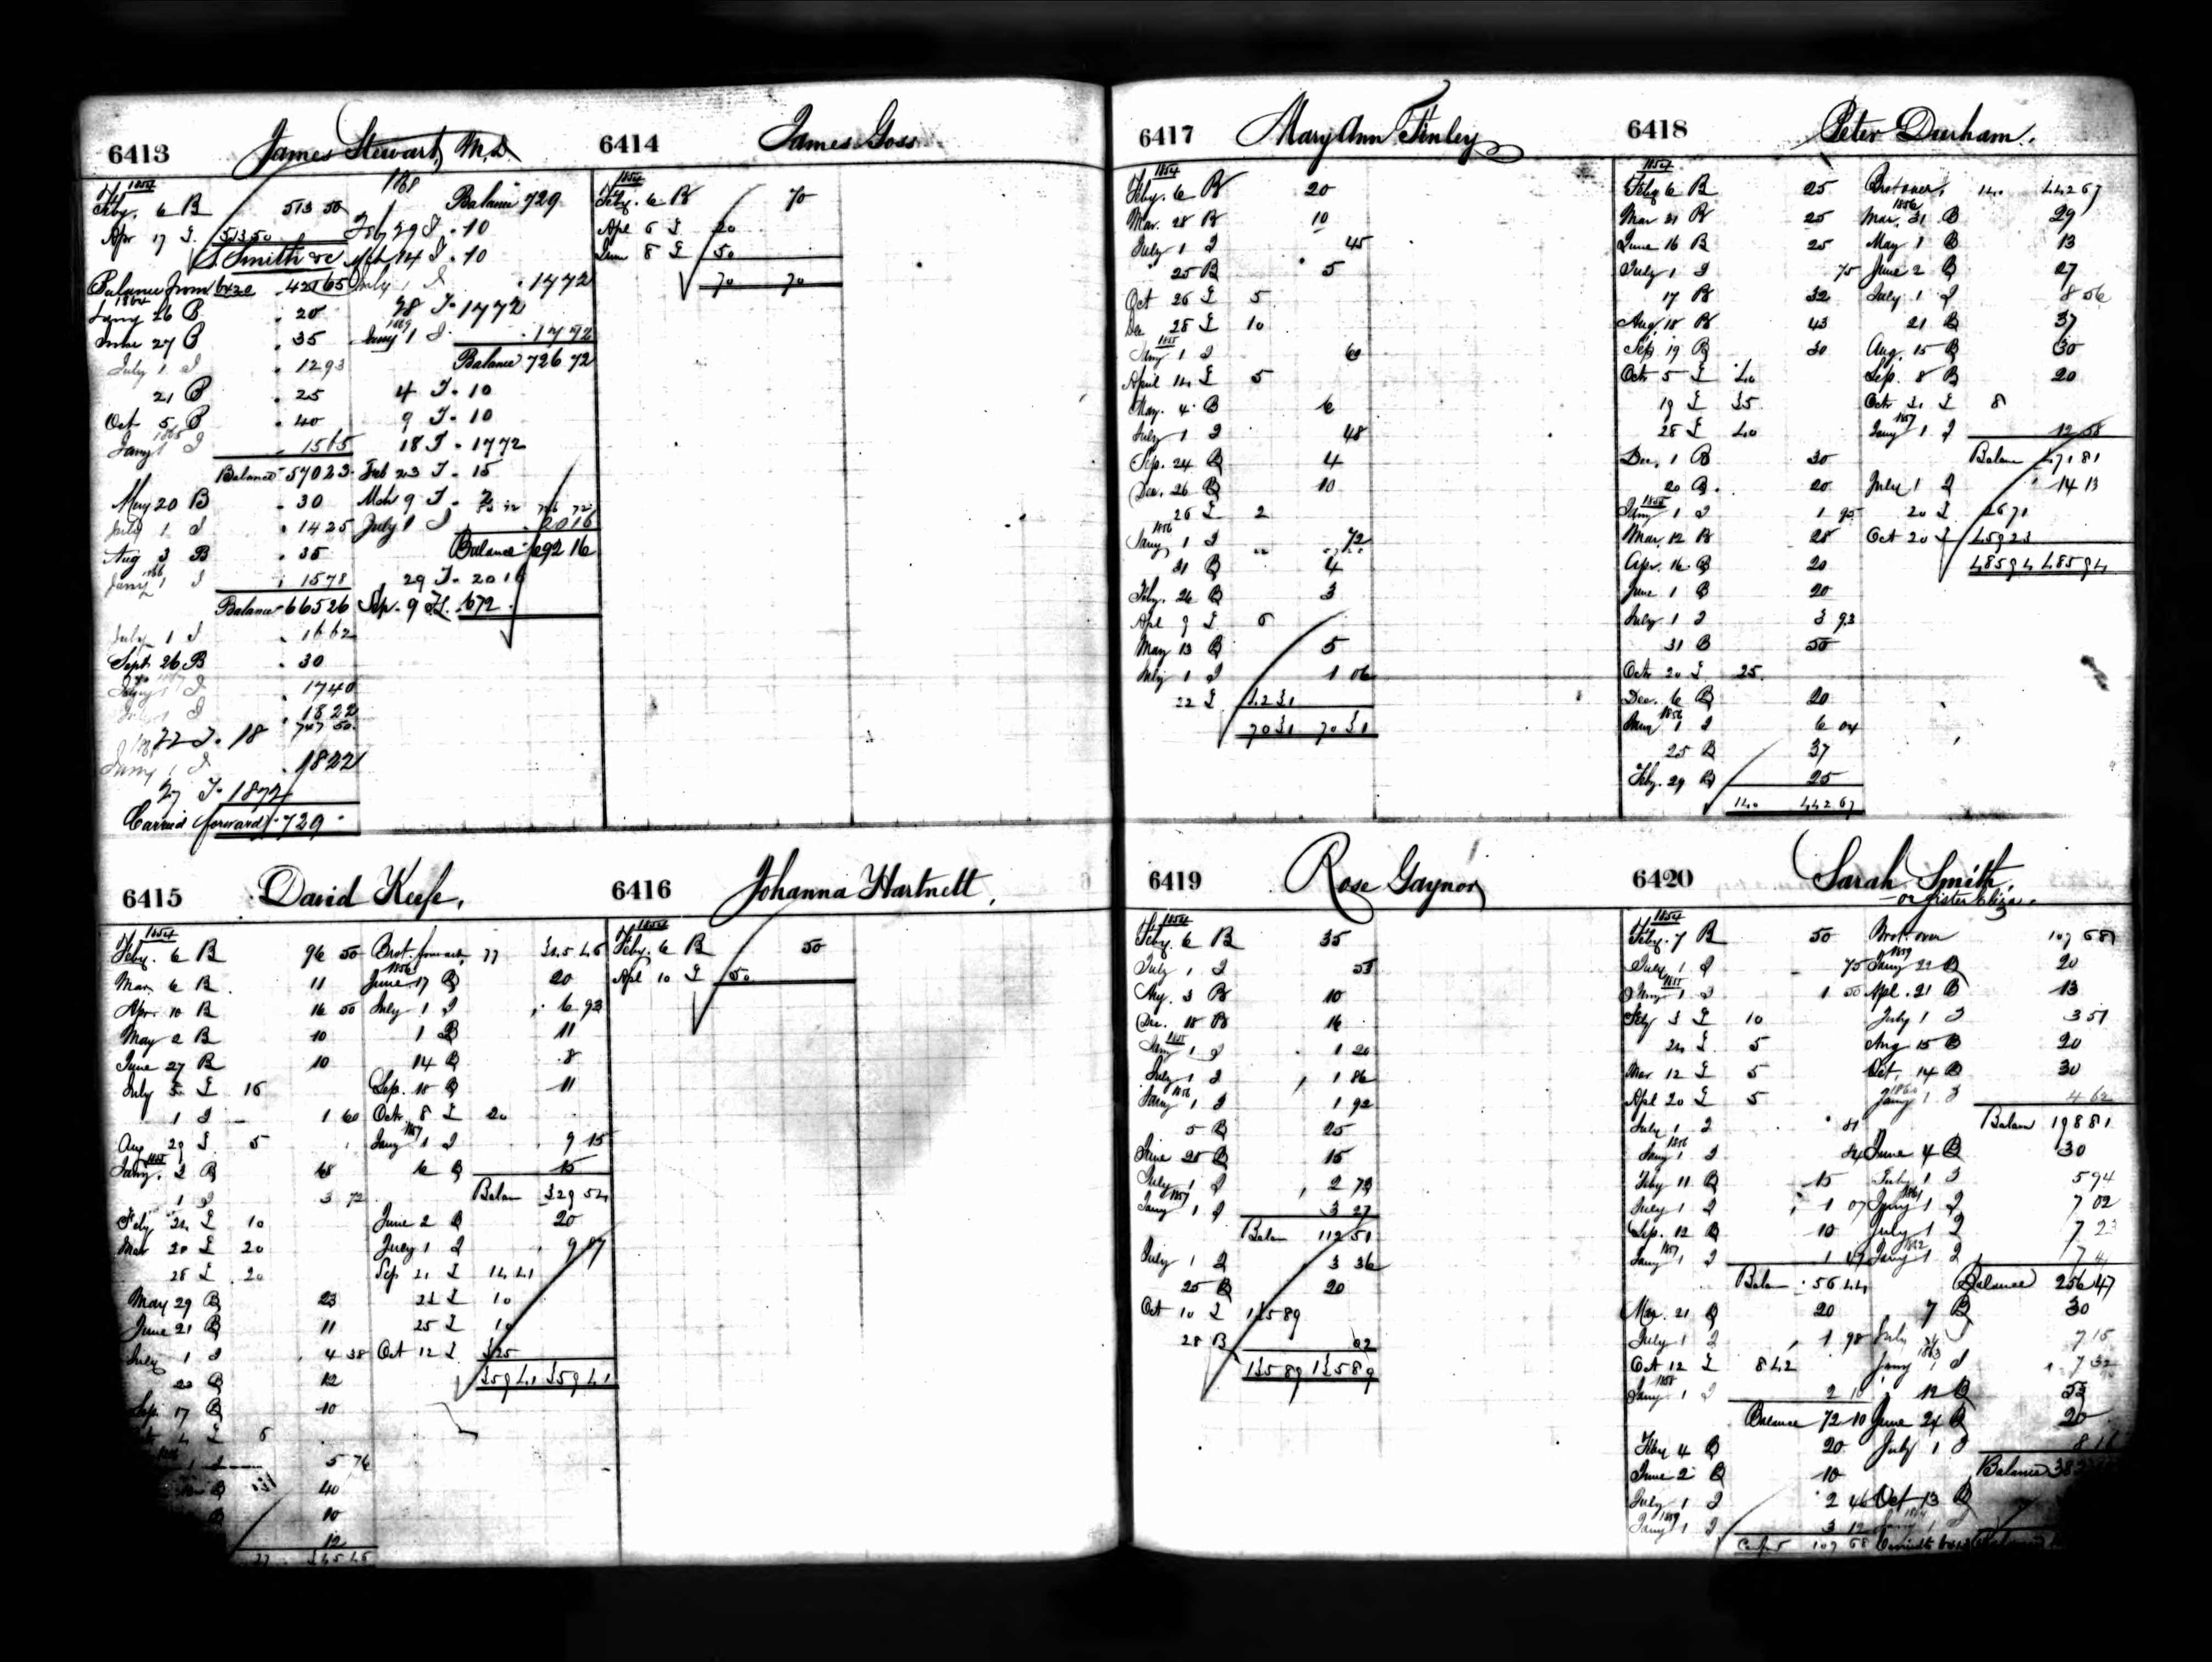 6413 James Stewart, M.D.
1854
Feby. 6 B 513 50
Apr 17 £ 513 50
Smith &c
Balance from 6420 . 421 65
1864
Jany 26 B . 20
June 27 B . 35
July 1 I . 12 93
21 B . 25
Oct 5 B . 40
1865
Jany 1 I . 15 65
Balance 570 23
May 20 B . 30
July 1 I . 14 25
Aug 3 B . 35
1866
Jany 1 I . 15 78
Balance 665 26
July 1 I . 16 62
Sept 26 B . 30
Jany 1 I . 17 40
July 1 I . 18 22
747 50
22 I . 18
Jany 1 I . 18 22
27 I . 18 72
Carried forward . 729
1868
Balance 729
Feby 29 I . 10
Mch 14 I . 10
July 1 I . 17 72
28 I . 17 72
1869
Jany 1 I . 17 92
Balance 726 72
4 I . 10
9 I . 10
18 I . 17 72
Feb 23 I . 15
Mch 9 I .
July 1 I . 20 16
Balance 692 16
29 I . 20 16
Sep. 9 I . 672
6414 James Goss
1854
Feby. 6 B 70
Apl 6 £ 20
June 8 £ 50
70 70
6415 David Keefe,
1854
Feby. 6 B 96 50
Mar. 6 B 11
Apr. 10 B 16 50
May 2 B 10
June 27 B 10
July 5 £ 16
1 I 1 60
Aug 29 £ 5
1855
Jany. 2 B 48
1 I 3 72
Feby 24 £ 10
Mar 20 £ 20
28 £ 20
May 29 B 23
June 21 B 11
July 1 I 4 38
22 B 12
Sep. 17 B 10
4 £ 6
1 I 5 76
B 40
B 10
12
77 345 46
Brot. forward, 77 345 46
1856
June 17 B 20
July 1 I 6 93
1 B 11
14 B 8
Sep. 10 B 11
Octr 8 £ 20
1857
Jany 1 I 9 15
6 B 15
Balan 329 54
June 2 B 20
July 1 I 9 87
Sep 21 £ 14 41
22 £ 10
25 £ 10
Oct 12 £ 325
359 41 359 41
6416 Johanna Hartnett,
1854
Feby. 6 B 50
Apl 10 £ 50
6417 Mary Ann Finley
1854
Feby. 6 B 20
Mar. 28 B 10
July 1 I 45
25 B 5
Oct 26 £ 5
Dec 28 £ 10
1855
Jany 1 I 60
April 14 £ 5
May. 4 B 6
July 1 I 48
Sep. 24 B 4
Dec. 26 B 10
26 £ 2
1856
Jany 1 I 72
31 B 4
Feby. 26 B 3
Apl 9 £ 6
May 13 B 5
July 1 I 1 06
22 £ 42 31
70 31 70 31
6418 Peter Durham.
1854
Feby 6 B 25
Mar 21 B 25
June 16 B 25
July 1 I 75
17 B 32
Aug. 18 B 43
Sep. 19 B 30
Octr 5 £ 40
19 £ 35
28 £ 40
Dec. 1 B 30
20 B. 20
1855
Jany 1 I 1 95
Mar. 12 B 28
Apr. 16 B 20
June 1 B 20
July 1 I 3 93
31 B 50
Octr 20 £ 25
Dec. 6 B 20
1856
Jany 1 I 6 04
25 B 37
Feby. 29 B 25
140 442 67
Brot over, 140 442 67
1856
Mar. 31 B 29
May 1 B 13
June 2 B 27
July 1 I 8 56
21 B 37
Aug. 15 B 30
Sep. 8 B 20
Octr 31 £ 8
1857
Jany 1 I 12 58
Balan 471 81
July 1 I 14 13
20 £ 26 71
Oct 20 £ 459 23
485 94 485 94
6419 Rose Gaynor
1854
Feby. 6 B 35
July 1 I 53
Aug. 3 B 10
Dec. 18 B 16
1855
Jany 1 I 1 20
July 1 I 1 86
1856
Jany 1 I 1 92
5 B 25
June 28 B 15
July 1 I 2 73
1857
Jany 1 I 3 27
Balan 112 51
July 1 I 3 36
25 B 20
Oct 10 £ 135 89
28 B 02
135 89 135 89
6420 Sarah Smith,
or sister Eliza.
1854
Feby. 7 B 50
July 1 I 75
1855
Jany 1 I 1 50
Feby 3 £ 10
24 £ 5
Mar 12 £ 5
Apl 20 £ 5
July 1 I 81
1856
Jany 1 I 84
Feby 11 B 15
July 1 I 1 07
Sep. 12 B 10
1857
Jany 1 I 1 47
Balan 56 44
Mar. 21 B 20
July 1 I 1 98
Oct 12 £ 8 42
1858
Jany 1 I 2 10
Balance 72 10
Feby 4 B 20
June 2 B 10
July 1 I 2 46
1859
Jany 1 I 3 12
107 68
Brot over 107 68
1859
Jany 22 B 20
Apl. 21 B 13
July 1 I 3 51
Aug 15 B 20
Oct. 14 B 30
1860
Jany 1 I 4 62
Balan 198 81
June 4 B 30
July 1 I 5 94
1861
Jany 1 I 7 02
July 1 I 7 23
1862
Jany 1 I 7 4
Balance 256 47
7 B 30
July 1 I 7 15
1863
Jany 1 I 7 32
12 B 53
June 24 B 20
July 1 I 8 16
Balance 382
Oct 13 B
1864
Jany 1 I